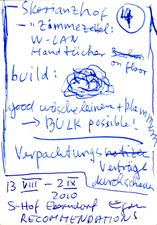 - Skorianzhof
4
- "Zimmerzettel:
W-LAN
Handtücher
on floor
build:
good wäscheleinen +
→ BULK possible!
Verpachtungs
Verträge
durchschauen
13 VIII - 2 IX
2010
S-Hof Eberndorf
RECOMMENDATIONS